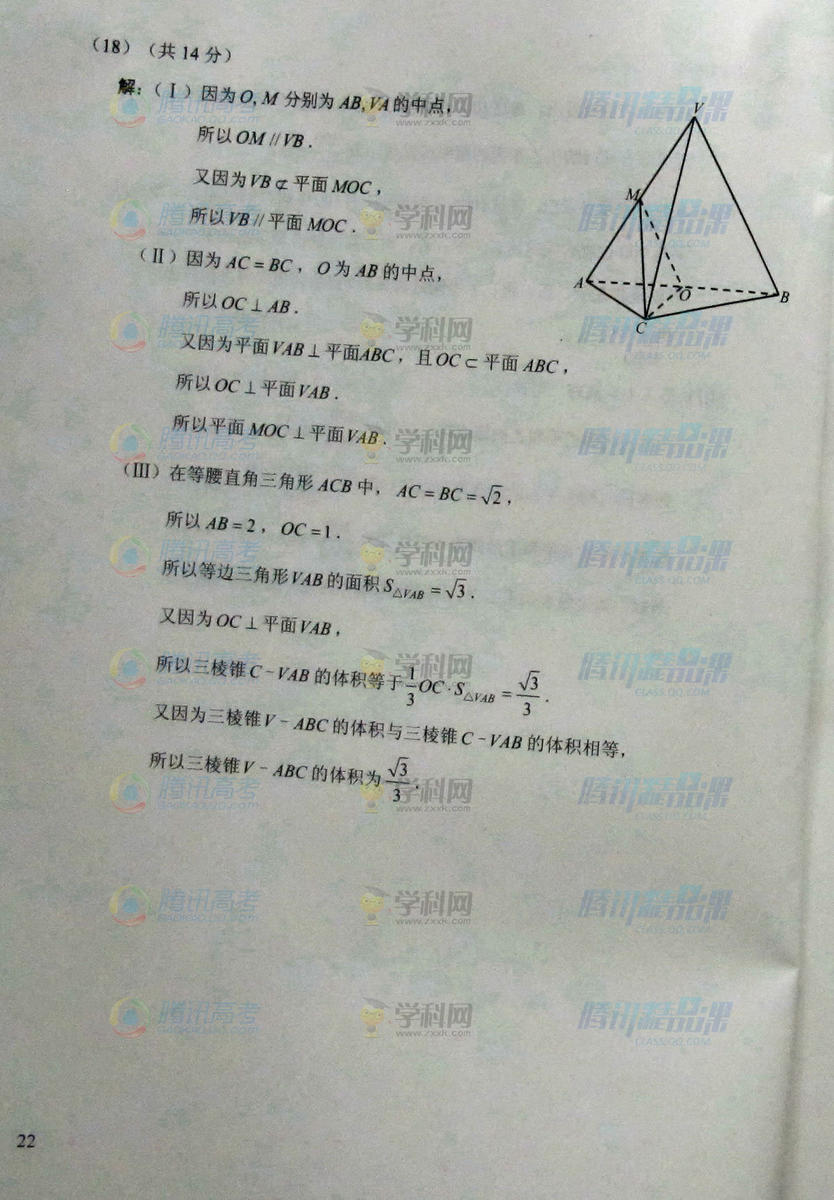 （18）（共 14 分）
解：（Ⅰ）因为 O, M 分别为 AB, VA 的中点，
所以 OM // VB .
又因为 VB ⊄ 平面 MOC，
所以 VB // 平面 MOC .
（Ⅱ）因为 AC = BC， O 为 AB 的中点，
所以 OC ⊥ AB .
又因为平面 VAB ⊥ 平面ABC，且 OC ⊂ 平面 ABC，
所以 OC ⊥ 平面 VAB .
所以平面 MOC ⊥ 平面 VAB .
（Ⅲ）在等腰直角三角形 ACB 中， AC = BC = √2，
所以 AB = 2， OC = 1 .
所以等边三角形 VAB 的面积 S△VAB = √3 .
又因为 OC ⊥ 平面 VAB，
所以三棱锥 C - VAB 的体积等于 1/3 OC · S△VAB = √3/3 .
又因为三棱锥 V - ABC 的体积与三棱锥 C - VAB 的体积相等，
所以三棱锥 V - ABC 的体积为 √3/3 .
V
M
A
O
B
C
22
腾讯高考
GAOKAO.QQ.COM
学科网
www.zxxk.com
腾讯精品课
CLASS.QQ.COM